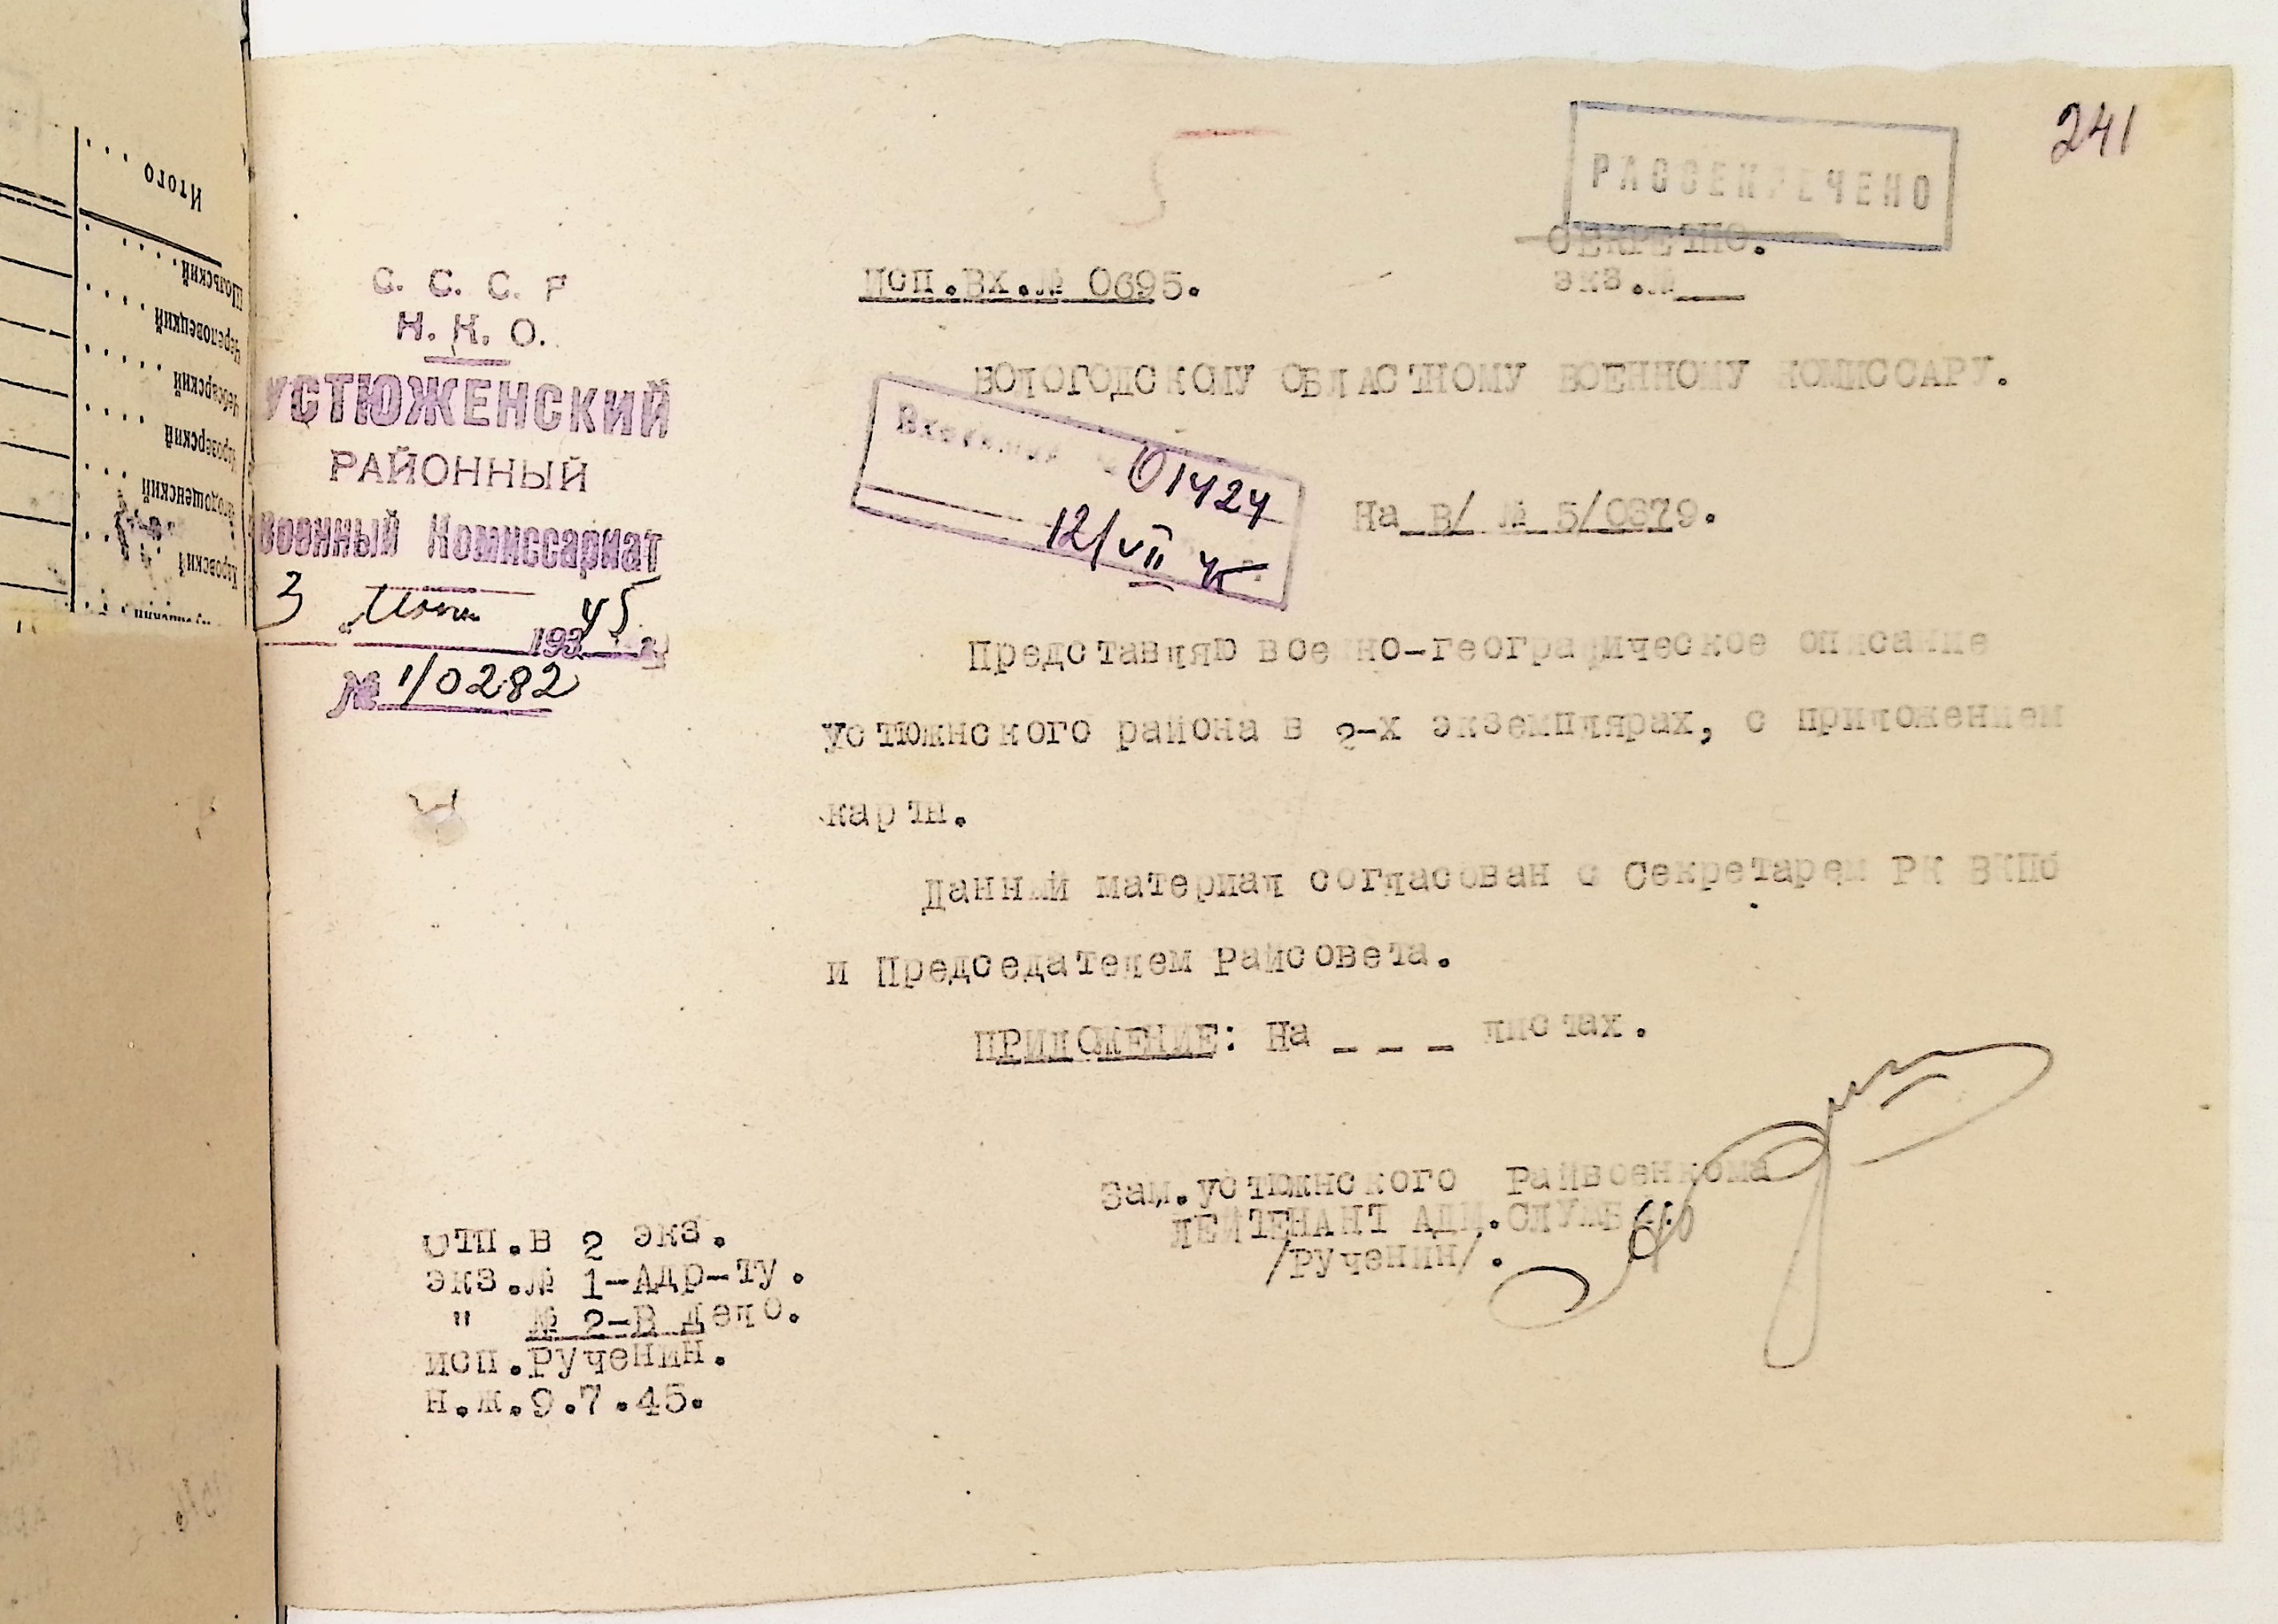 241
РАССЕКРЕЧЕНО
СЕКРЕТНО.
экз.№___
Исп.Вх.№ 0695.
С. С. С. Р
Н. К. О.
УСТЮЖЕНСКИЙ
РАЙОННЫЙ
Военный Комиссариат
3 45
193 г.
№ 1/0282
ВОЛОГОДСКОМУ ОБЛАСТНОМУ ВОЕННОМУ КОМИССАРУ.
Входящий № 01424
12/VII 45
На В/ № 5/0379.
Представляю военно-географическое описание
устюжнского района в 2-х экземплярах, с приложением
карты.
Данный материал согласован с Секретарем РК ВКПб
и Председателем Райсовета.
ПРИЛОЖЕНИЕ: На _ _ _ листах.
Зам.устюжнского Райвоенкома
ЛЕЙТЕНАНТ АДМ.СЛУЖБЫ
/Рученин/.
отп.в 2 экз.
экз.№ 1-Адр-ту.
" № 2-В дело.
исп.Рученин.
н.ж.9.7.45.
Итого
Шольский
Череповецкий
Чебсарский